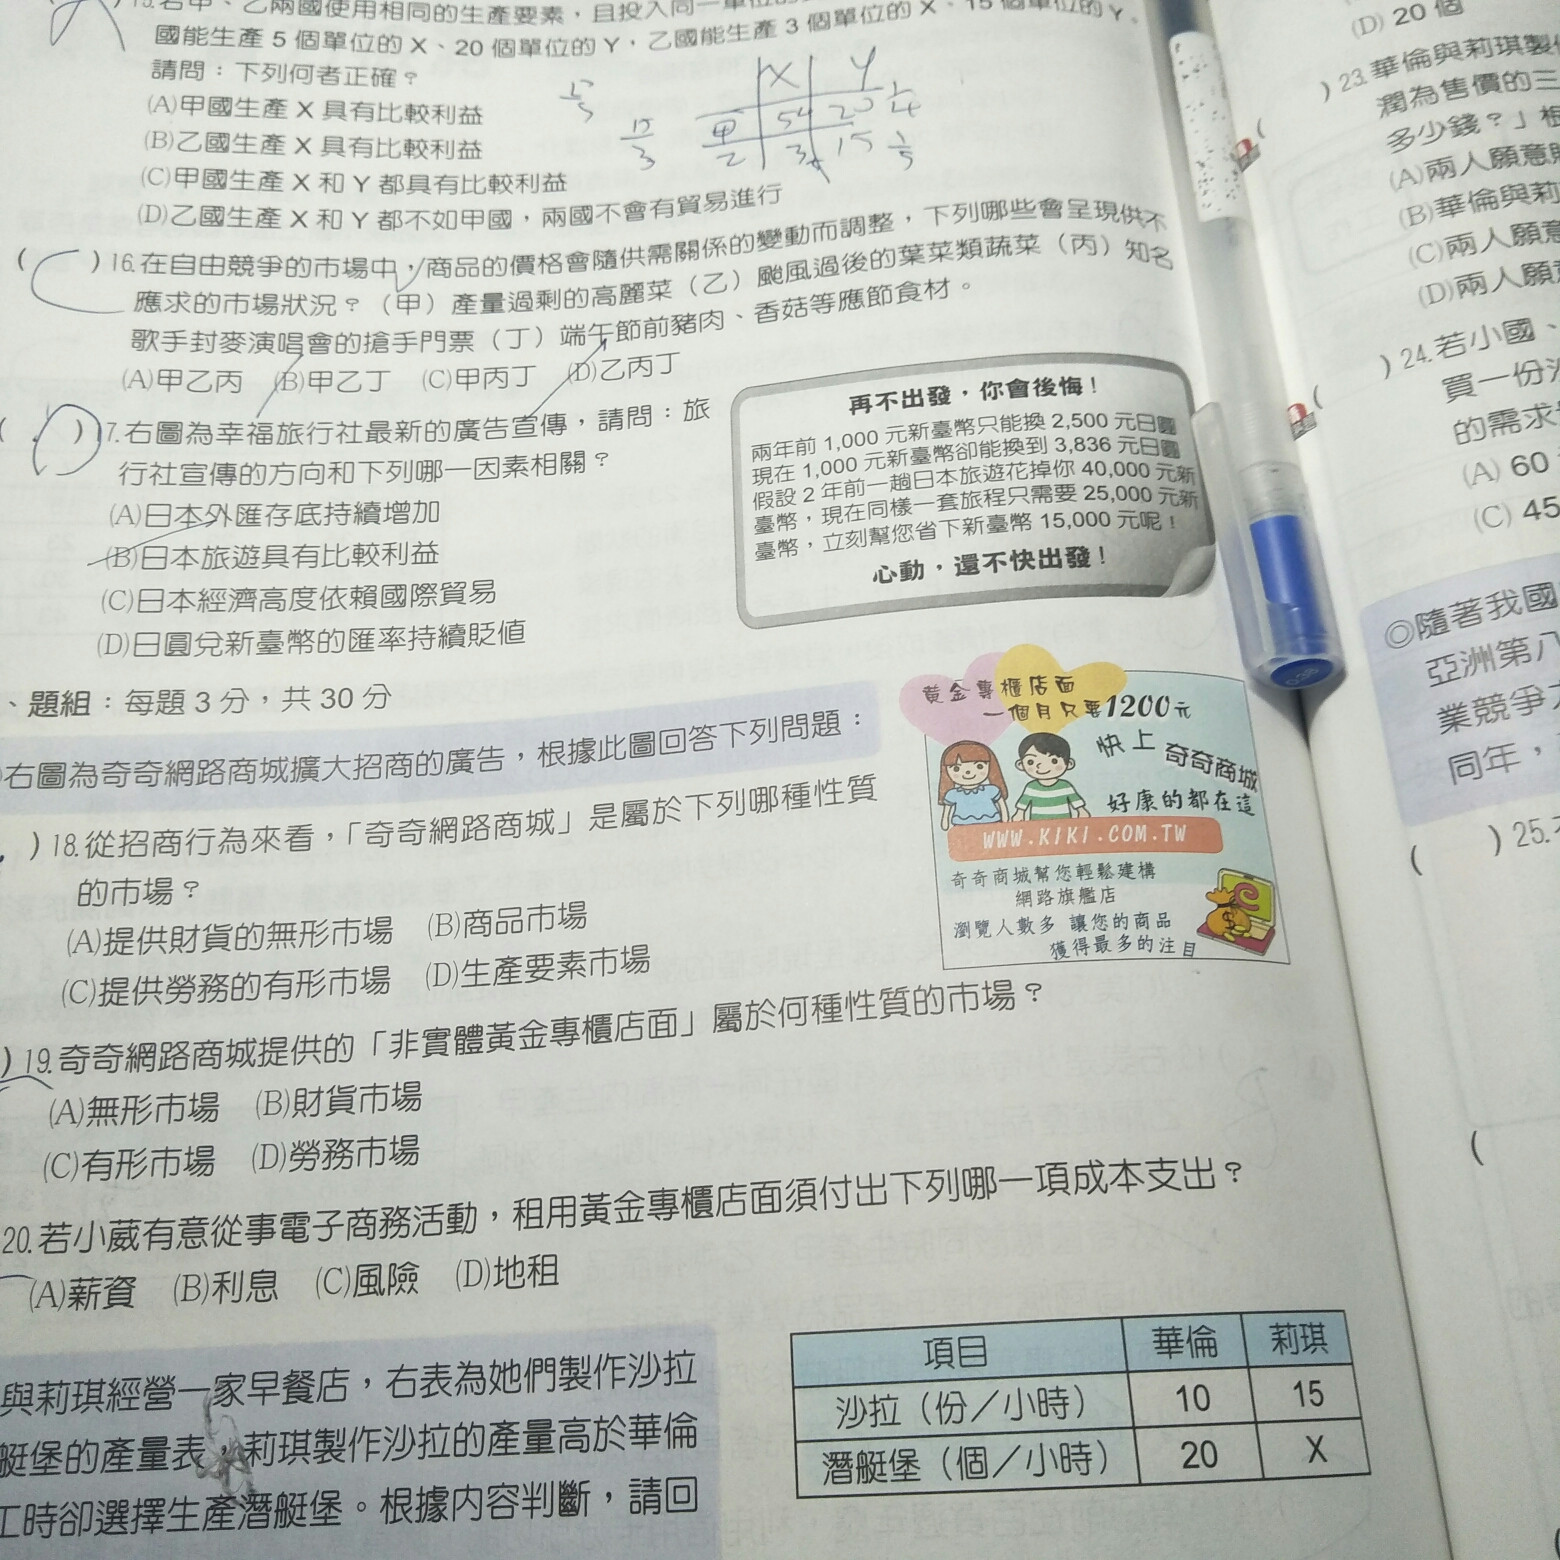 15.若甲、乙兩國使用相同的生產要素，且投入同一單位
國能生產 5 個單位的 X、20 個單位的 Y，乙國能生產 3 個單位的 X、15 個單位的 Y。
請問：下列何者正確？
(A)甲國生產 X 具有比較利益
(B)乙國生產 X 具有比較利益
(C)甲國生產 X 和 Y 都具有比較利益
(D)乙國生產 X 和 Y 都不如甲國，兩國不會有貿易進行
X Y
甲 20 1/4
乙 3 15 1/5
15/3
( )16.在自由競爭的市場中，商品的價格會隨供需關係的變動而調整，下列哪些會呈現供不
應求的市場狀況？（甲）產量過剩的高麗菜（乙）颱風過後的葉菜類蔬菜（丙）知名
歌手封麥演唱會的搶手門票（丁）端午節前豬肉、香菇等應節食材。
(A)甲乙丙 (B)甲乙丁 (C)甲丙丁 (D)乙丙丁
( )17.右圖為幸福旅行社最新的廣告宣傳，請問：旅
行社宣傳的方向和下列哪一因素相關？
(A)日本外匯存底持續增加
(B)日本旅遊具有比較利益
(C)日本經濟高度依賴國際貿易
(D)日圓兌新臺幣的匯率持續貶值
再不出發，你會後悔！
兩年前 1,000 元新臺幣只能換 2,500 元日圓
現在 1,000 元新臺幣卻能換到 3,836 元日圓
假設 2 年前一趟日本旅遊花掉你 40,000 元新
臺幣，現在同樣一套旅程只需要 25,000 元新
臺幣，立刻幫您省下新臺幣 15,000 元呢！
心動，還不快出發！
、題組：每題 3 分，共 30 分
右圖為奇奇網路商城擴大招商的廣告，根據此圖回答下列問題：
)18.從招商行為來看，「奇奇網路商城」是屬於下列哪種性質
的市場？
(A)提供財貨的無形市場 (B)商品市場
(C)提供勞務的有形市場 (D)生產要素市場
黃金專櫃店面
一個月只要1200元
快上奇奇商城
好康的都在這
WWW.KIKI.COM.TW
奇奇商城幫您輕鬆建構
網路旗艦店
瀏覽人數多 讓您的商品
獲得最多的注目
)19.奇奇網路商城提供的「非實體黃金專櫃店面」屬於何種性質的市場？
(A)無形市場 (B)財貨市場
(C)有形市場 (D)勞務市場
20.若小葳有意從事電子商務活動，租用黃金專櫃店面須付出下列哪一項成本支出？
(A)薪資 (B)利息 (C)風險 (D)地租
與莉琪經營一家早餐店，右表為她們製作沙拉
艇堡的產量表，莉琪製作沙拉的產量高於華倫
工時卻選擇生產潛艇堡。根據內容判斷，請回
項目 華倫 莉琪
沙拉（份／小時） 10 15
潛艇堡（個／小時） 20 X
(D) 20 個
)23.華倫與莉琪製
潤為售價的三
多少錢？」根
(A)兩人願意
(B)華倫與莉
(C)兩人願意
(D)兩人願
)24.若小國、
買一份沙
的需求
(A) 60
(C) 45
◎隨著我國
亞洲第八
業競爭
同年，
( )25.
(